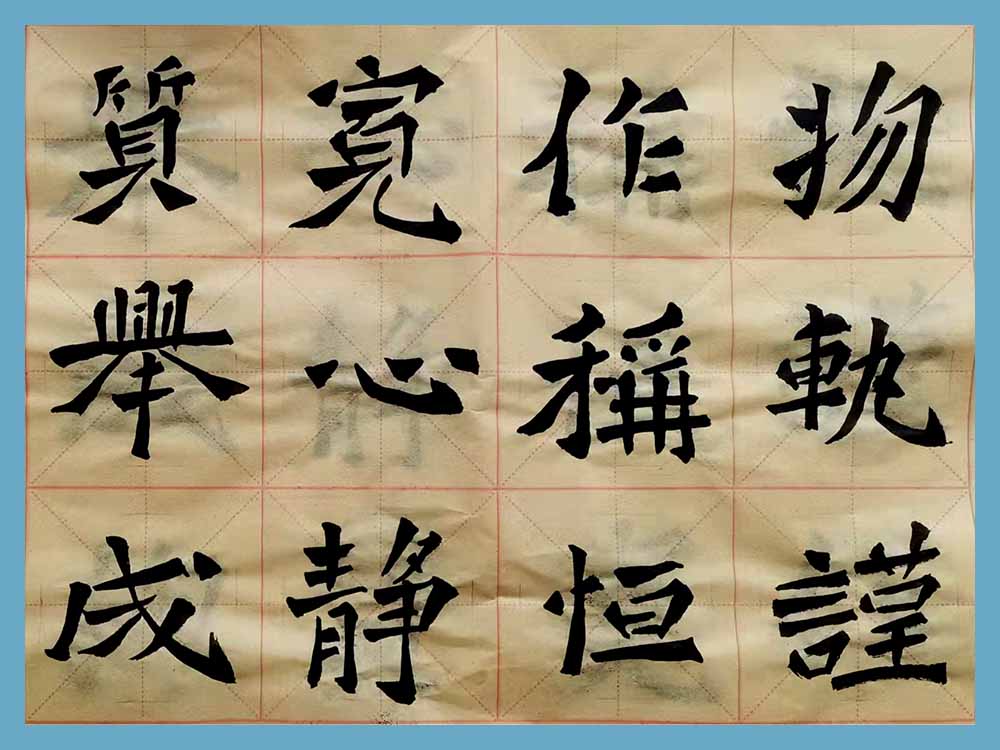 物軌謹
作稱恒
寬心静
質舉成